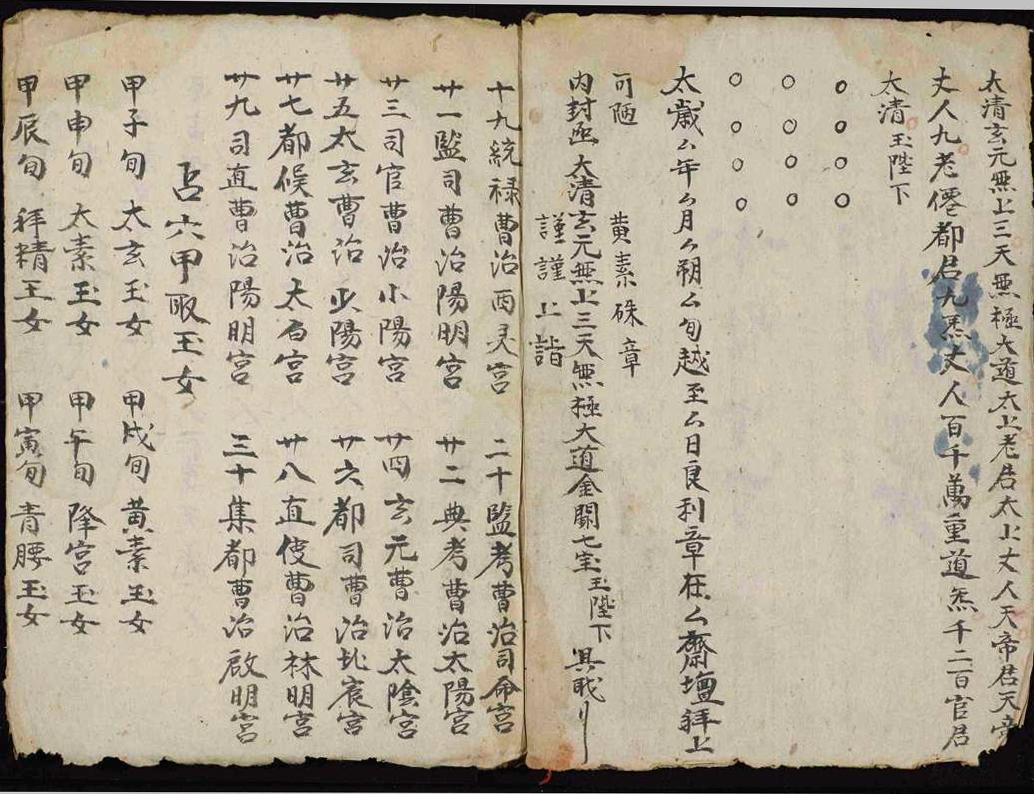 太清玄元無上三天無極大道太上老君太上丈人天帝君天帝
丈人九老僊都君九炁丈人百千萬重道炁千二百官君
太清玉陛下
○○○○
○○○○
○○○○
太歲厶年厶月厶朔厶旬越至厶日良利章在厶齋壇拜上
可陋 黃素硃章
內封函 太清玄元無上三天無極大道金闕七宝玉陛下 具职
謹謹上詣
十九統禄曹治酉灵宫 二十監考曹治司命宫
廿一監司曹治陽明宫 廿二典考曹治太陽宫
廿三司官曹治小陽宫 廿四玄元曹治太陰宫
廿五太玄曹治少陽宫 廿六都司曹治北宸宫
廿七都候曹治太白宫 廿八直使曹治林明宫
廿九司直曹治陽明宫 三十集都曹治啟明宫
六甲取玉女
甲子旬 太玄玉女 甲戌旬 黄素玉女
甲申旬 太素玉女 甲午旬 降宫玉女
甲辰旬 拜精玉女 甲寅旬 青腰玉女